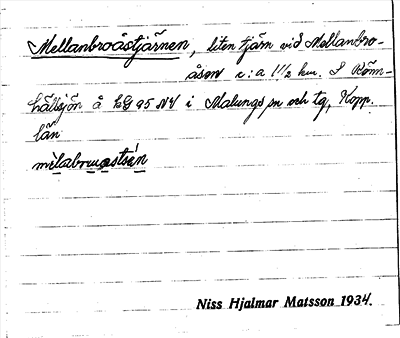 Mellanbroåstjärnen, liten tjärn vid Mellanbro-
åsen c:a 1 1/2 km. S Röm-
hällsjön å EG 95 NV i Malungs sn och tg, Kopp.
län
Niss Hjalmar Matsson 1934.